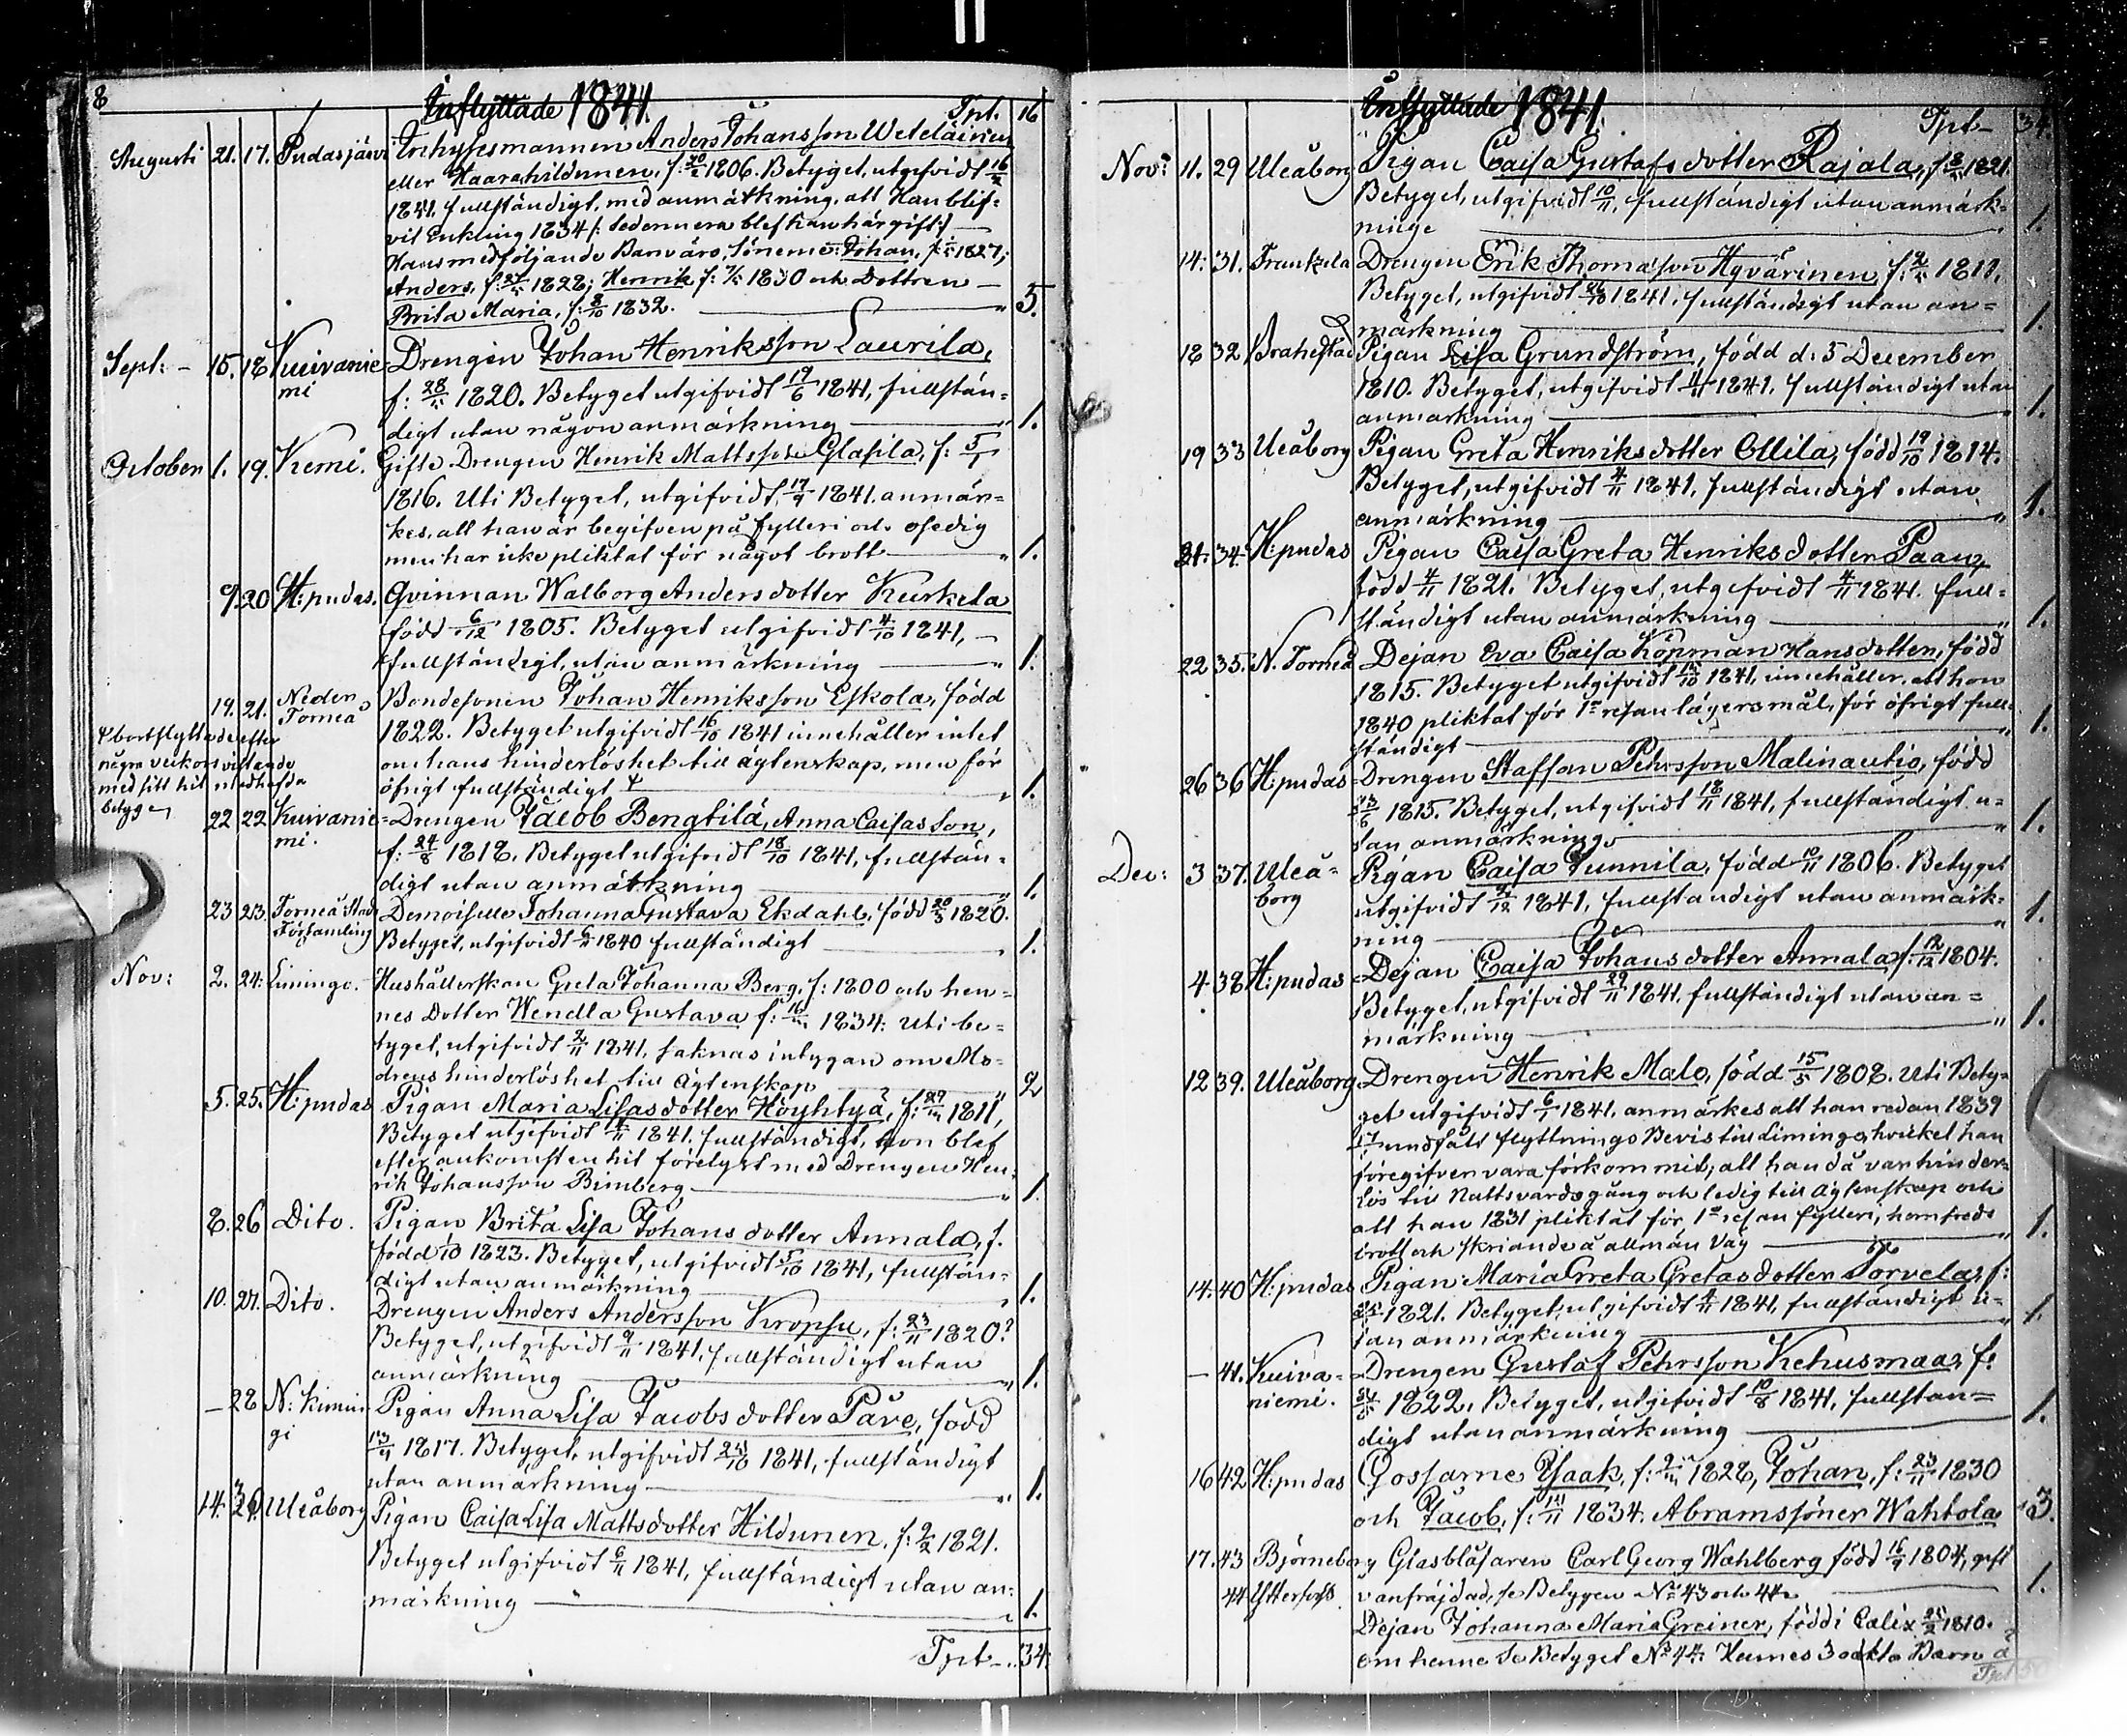 8
Inflyttade 1841. Tpt. 16
Augusti 21. 17. Pudasjärvi Inhysesmannen Anders Johansson Weteläinen
eller Haarahildunen, f. 20/2 1806. Betyget, utgifvidt 16/2
1841, fullständigt, med anmärkning, att Han blif-
vit Enkling 1834 /: sedermera blef han här gift:/
Hans medföljande Barn äro, Sönerne: Johan, 1827;
Anders, f: 1828; Henrik f: 1830 och Dottren
Brita Maria, f: 8/10 1832. " 5.
Sept: - 15. 18 Kuivanie- Drengen Johan Henriksson Laurila,
mi f: 28/5 1820. Betyget utgifvidt 19/6 1841, fullstän-
digt utan någon anmärkning " 1.
October 1. 19. Kemi. Gifte Drengen Henrik Mattsson Glasila, f: 5/1
1816. Uti Betyget, utgifvidt 17/9 1841. anmär-
kes, att han är begifven på fylleri och osedig
men har icke pliktat för något brott " 1.
9. 20 H:pudas. Qvinnan Walborg Andersdotter Kurkela
född 6/12 1805. Betyget utgifvidt 4/10 1841,
fullständigt, utan anmärkning " 1.
19. 21. Neder Torneå Bondesonen Johan Henriksson Eskola, född
1822. Betyget utgifvidt 16/10 1841 innehåller intet
om hans hinderlöshet till ägtenskap, men för
öfrigt fullständigt " 1.
bortflyttade efter
några veckors vistande
med sitt hit medhafda
betyg
22 22 Kuivanie- Drengen Jacob Bengtilä, Anna Caisas Son,
mi. f: 24/8 1818. Betyget utgifvidt 18/10 1841, fullstän-
digt utan anmärkning " 1.
23 23. Torneå Stads Församling Demoiselle Johanna Gustava Ekdahl, född 20/8 1820.
Betyget, utgifvidt 1840 fullständigt " 1.
Nov: 2. 24. Limingo. Hushållerskan Greta Johanna Berg, f: 1800 och hen-
nes Dotter Wendla Gustava f: 1834: Uti be-
tyget, utgifvidt 2/11 1841, saknas intygan om Mo-
drens hinderlöshet till Ägtenskap " 2
5. 25. H:pudas Pigan Maria Lisasdotter Höyhtyä, f: 1811,
Betyget utgifvidt 4/11 1841. fullständigt, hon blef
efter ankomsten hit förelyst med Drengen Hen-
rik Johansson Bimberg " 1.
8. 26 Dito. Pigan Brita Lisa Johansdotter Annala, f.
född 1823. Betyget, utgifvidt 5/10 1841, fullstän-
digt utan anmärkning " 1.
10. 27. Dito. Drengen Anders Andersson Kropsu, f: 23/11 1820?
Betyget, utgifvidt 9/11 1841, fullständigt utan
anmärkning " 1.
- 28 N: Kimin- Pigan Anna Lisa Jacobsdotter Päre, född
gi 1817. Betyget, utgifvidt 24/10 1841, fullständigt
utan anmärkning " 1.
14. Uleåborg Pigan Caisa Lisa Mattsdotter Hildunen, f: 9/2 1821.
Betyget utgifvidt 6/11 1841, fullständigt utan an-
märkning " 1.
Tpt - 34.
Inflyttade 1841.
Tpt - 34.
Nov: 11. 29 Uleåborg Pigan Caisa Gustafsdotter Rajala, f. 1821
Betyget, utgifvidt 10/11, fullständigt utan anmärk-
ninge " 1.
14. 31. Frankila Drengen Erik Thomasson Hyvärinen, f: 1811.
Betyget, utgifvidt 26/10 1841, fullständigt utan an-
märkning 1.
18 32 Brahestad Pigan Lisa Grundström, född d: 5 December
1810. Betyget, utgifvidt 1841. fullständigt utan
anmärkning " 1.
19 33 Uleåborg Pigan Greta Henriksdotter Ollila, född 19/10 1814.
Betyget, utgifvidt 4/11 1841, fullständigt utan
anmärkning " 1.
21. 34. H:pudas Pigan Caisa Greta Henriksdotter Paan,
född 4/11 1821. Betyget, utgifvidt 4/11 1841. full-
ständigt utan anmärkning " 1.
22 35. N. Torneå Dejan Eva Caisa Köpman Hansdotter, född
1815. Betyget utgifvidt 1841, innehåller, att hon
1840 pliktat för 1a resan lägersmål, för öfrigt full-
ständigt " 1.
26 36 H:pudas Drengen Staffan Pehrsson Malinautio, född
1815. Betyget, utgifvidt 18/11 1841, fullständigt u-
tan anmärkning. " 1.
Dec: 3 37. Uleå- Pigan Caisa Tunnila, född 10/11 1806. Betyget
borg utgifvidt 1841, fullständigt utan anmärk-
ning " 1.
4 38 H:pudas Dejan Caisa Johansdotter Annala, f. 12/12 1804.
Betyget, utgifvidt 29/11 1841, fullständigt utan an-
märkning " 1.
12 39. Uleåborg Drengen Henrik Malo, född 15/5 1808. Uti Bety-
get utgifvidt 1841. anmärkes att han redan 1839
undfått flyttnings Bevis till Limingo, hvilket han
föregifver vara förkommit; att han då var hinder-
lös till Nattvardsgång och ledig till ägtenskap och
att han 1831 pliktat för 1a resan fylleri, hemfreds
brott och skriande å allmän Väg " 1.
14. 40 H:pudas Pigan Maria Greta Gretasdotter Torvela, f:
1821. Betyget, utgifvidt 1841, fullständigt u-
tan anmärkning " 1.
- 41. Kuiva- Drengen Gustaf Pehrsson Kehusmaa, f:
niemi. 1822. Betyget, utgifvidt 10/8 1841, fullstän-
digt utan anmärkning 1.
16 42 H:pudas Gossarne Isaak, f: 1828, Johan, f: 23/11 1830
och Jacob, f: 1834. Abramssöner Wahtola 3.
17. 43 Björneborg Glasblåsaren Carl Georg Wahlberg född 16/9 1804, gift
44 Ytterfors vanfräjdad, se Betygen No 43 och 44. 1.
Dejan Johanna Maria Greiner, född i Calix 1810.
om henne se Betyget No 44. Hennes 3 oäkta Barn
Tpt